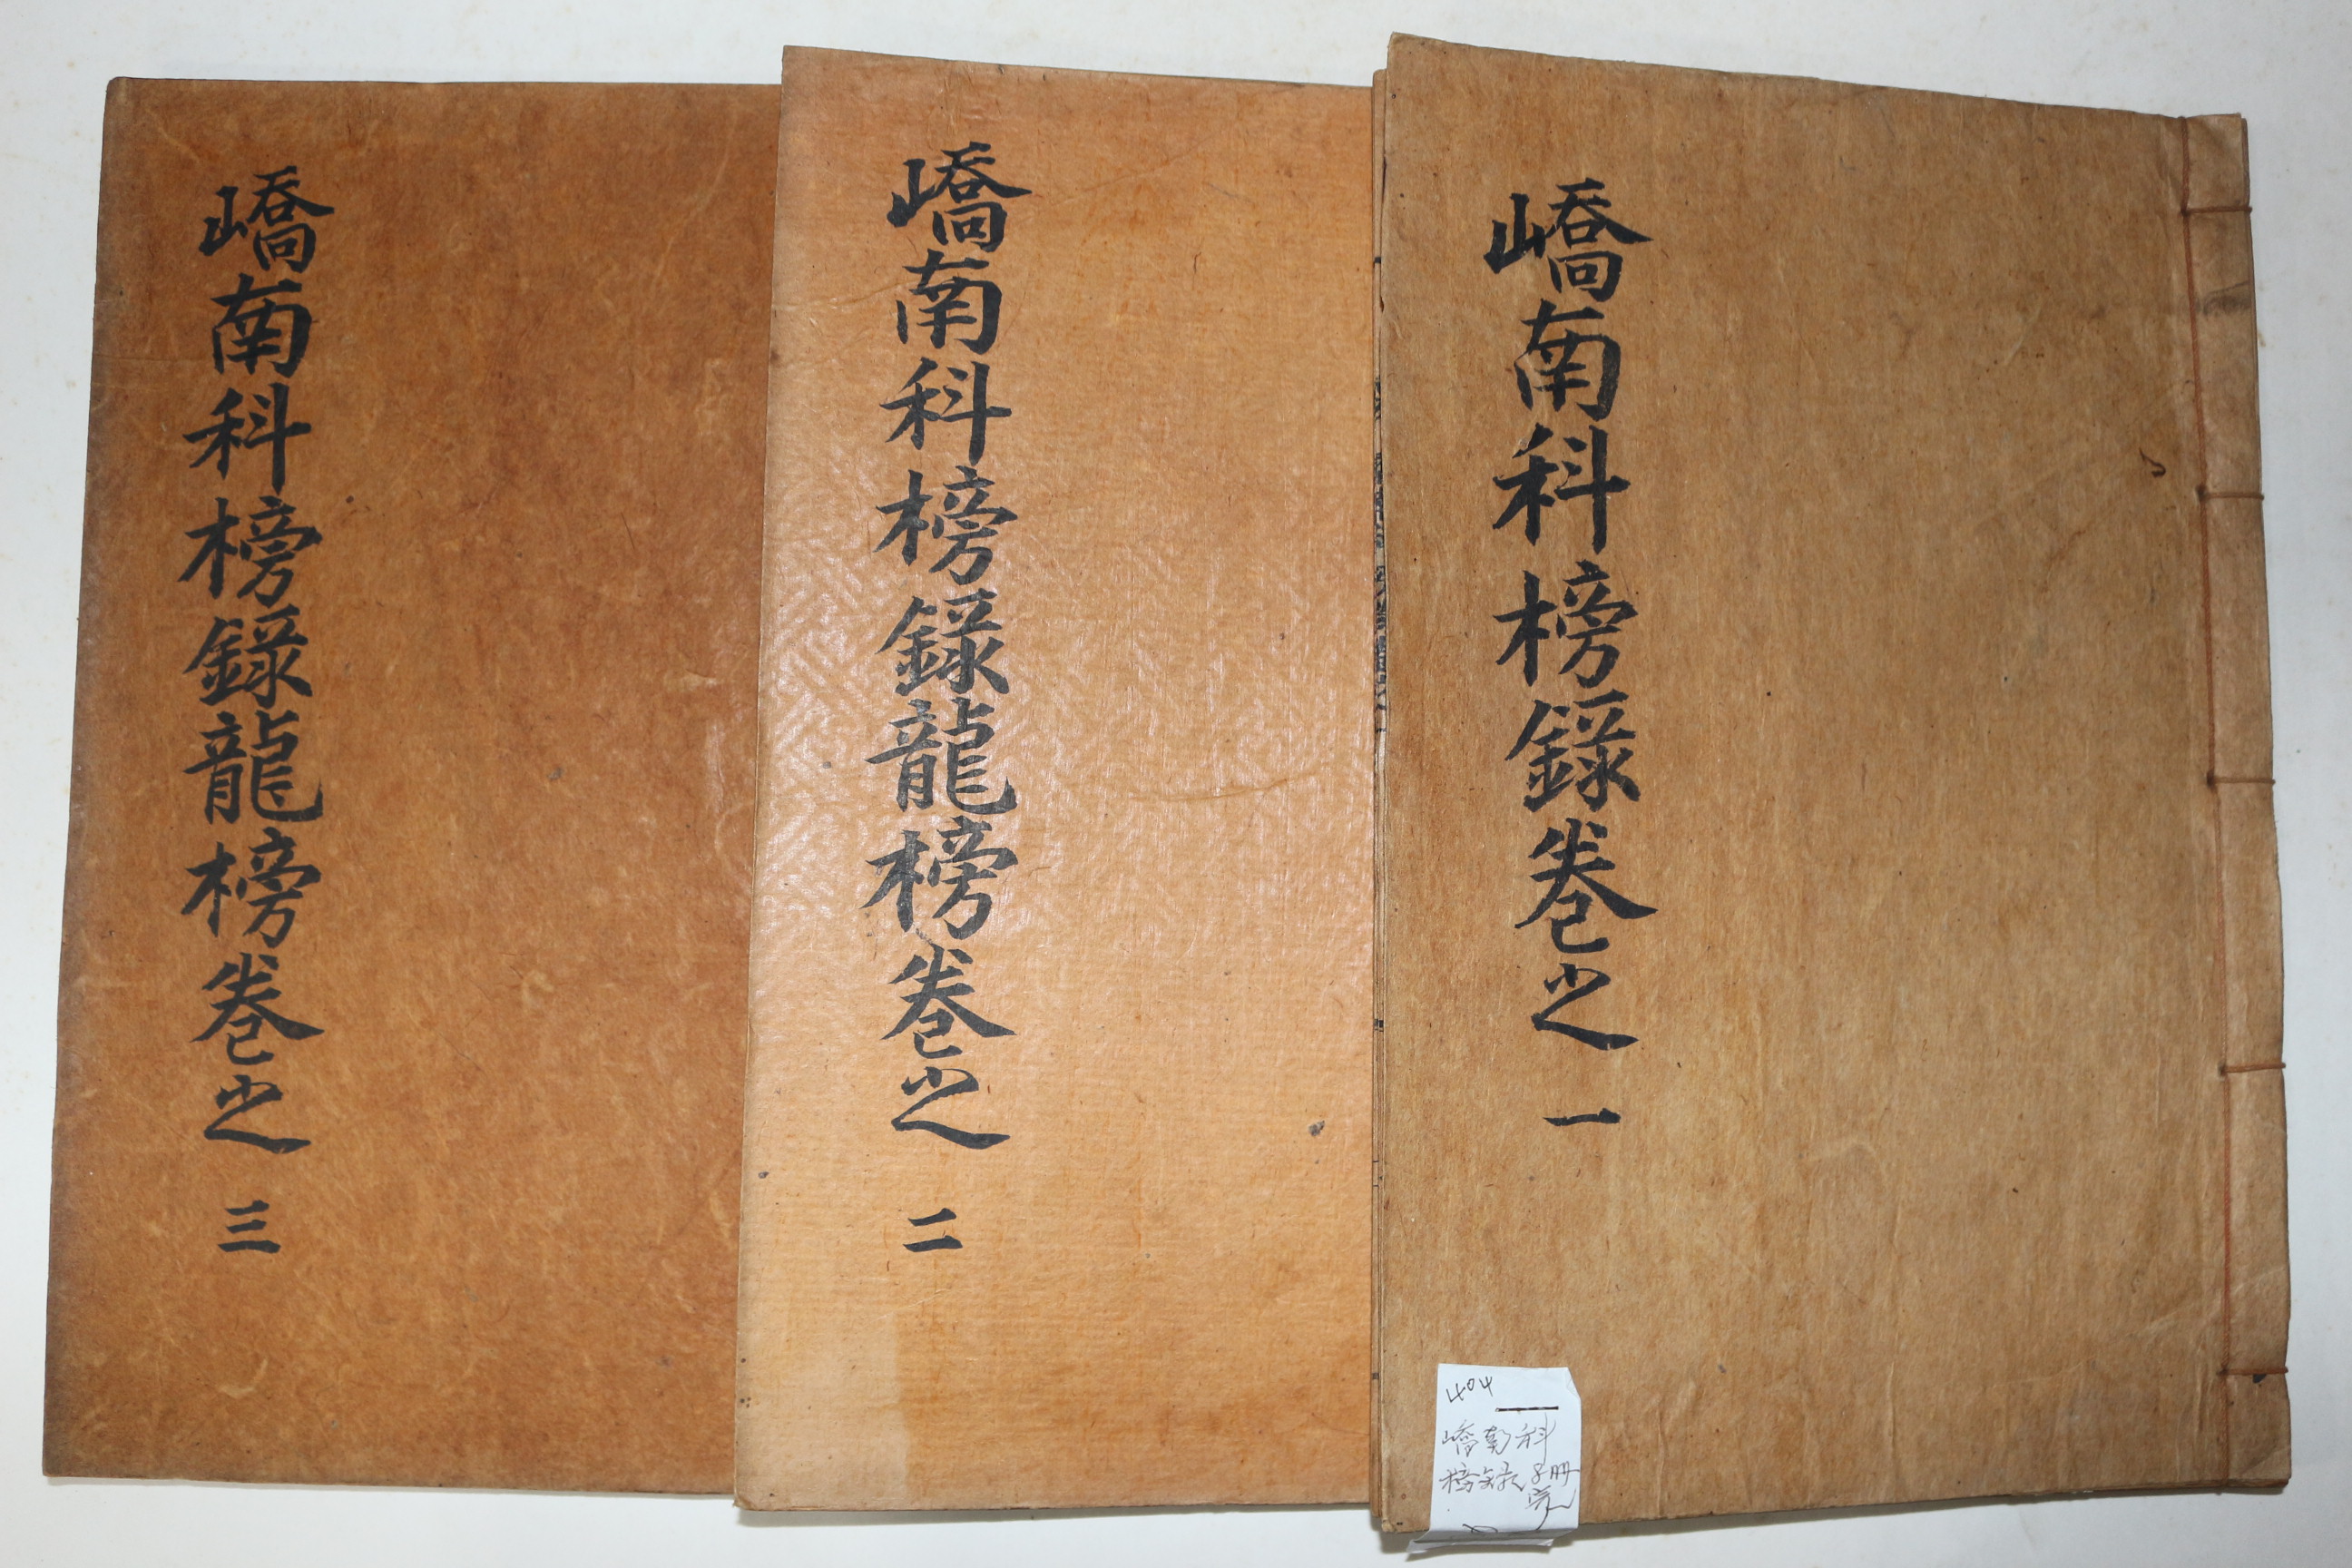 嶠南科榜錄卷之 一
嶠南科榜錄龍榜卷之 二
嶠南科榜錄龍榜卷之 三
404
嶠南科
榜錄 3册
完